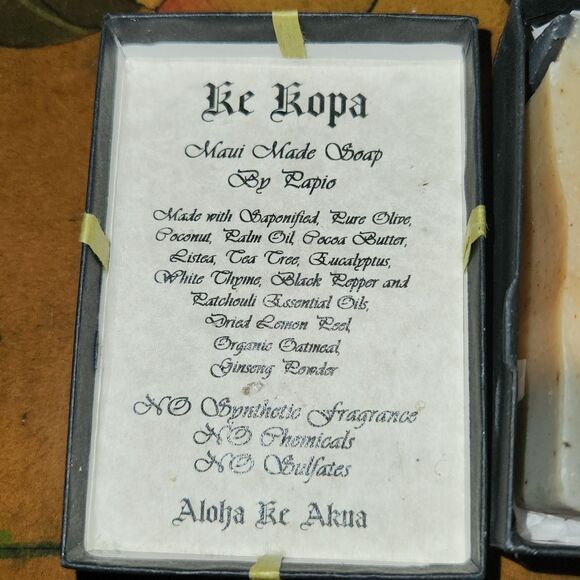 Ke Kopa
Maui Made Soap
By Papio
Made with Saponified, Pure Olive,
Coconut, Palm Oil, Cocoa Butter,
Listea, Tea Tree, Eucalyptus,
White Thyme, Black Pepper and
Patchouli Essential Oils,
Dried Lemon Peel,
Organic Oatmeal,
Ginseng Powder
NO Synthetic Fragrance
NO Chemicals
NO Sulfates
Aloha Ke Akua